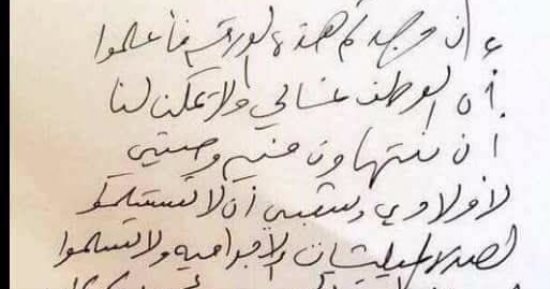 إن وجدتم هذه الورقة فأعلموا
أن الوطن غالي ولا يمكن لنا
أن نتهاون فيه وصيتي
لأولادي وشعبي أن لا تستسلموا
لهذه المليشيات الإجرامية ولا تسلموا